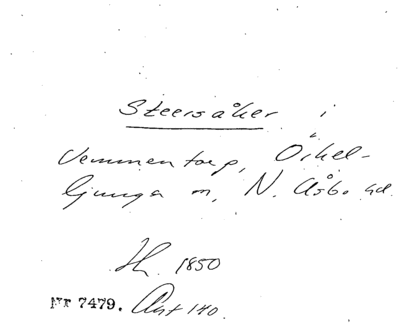 Steersåker i
Vemmentorp, Örkel-
ljunga sn, N. Åsbo hd.
Hl. 1850
Nr 7479. Akt 140.